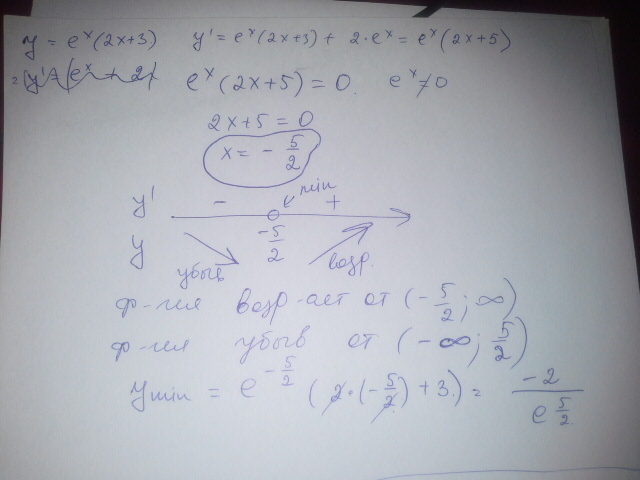 y = e^x(2x+3) y' = e^x(2x+3) + 2·e^x = e^x(2x+5)
e^x(2x+5) = 0. e^x ≠ 0
2x+5 = 0
x = - 5/2
y' - min +
-5/2
y убыв возр.
ф-ция возр-ает от (- 5/2; ∞)
ф-ция убыв от (-∞; 5/2)
y min = e^(-5/2) (2·(-5/2)+3) = -2/e^(5/2)